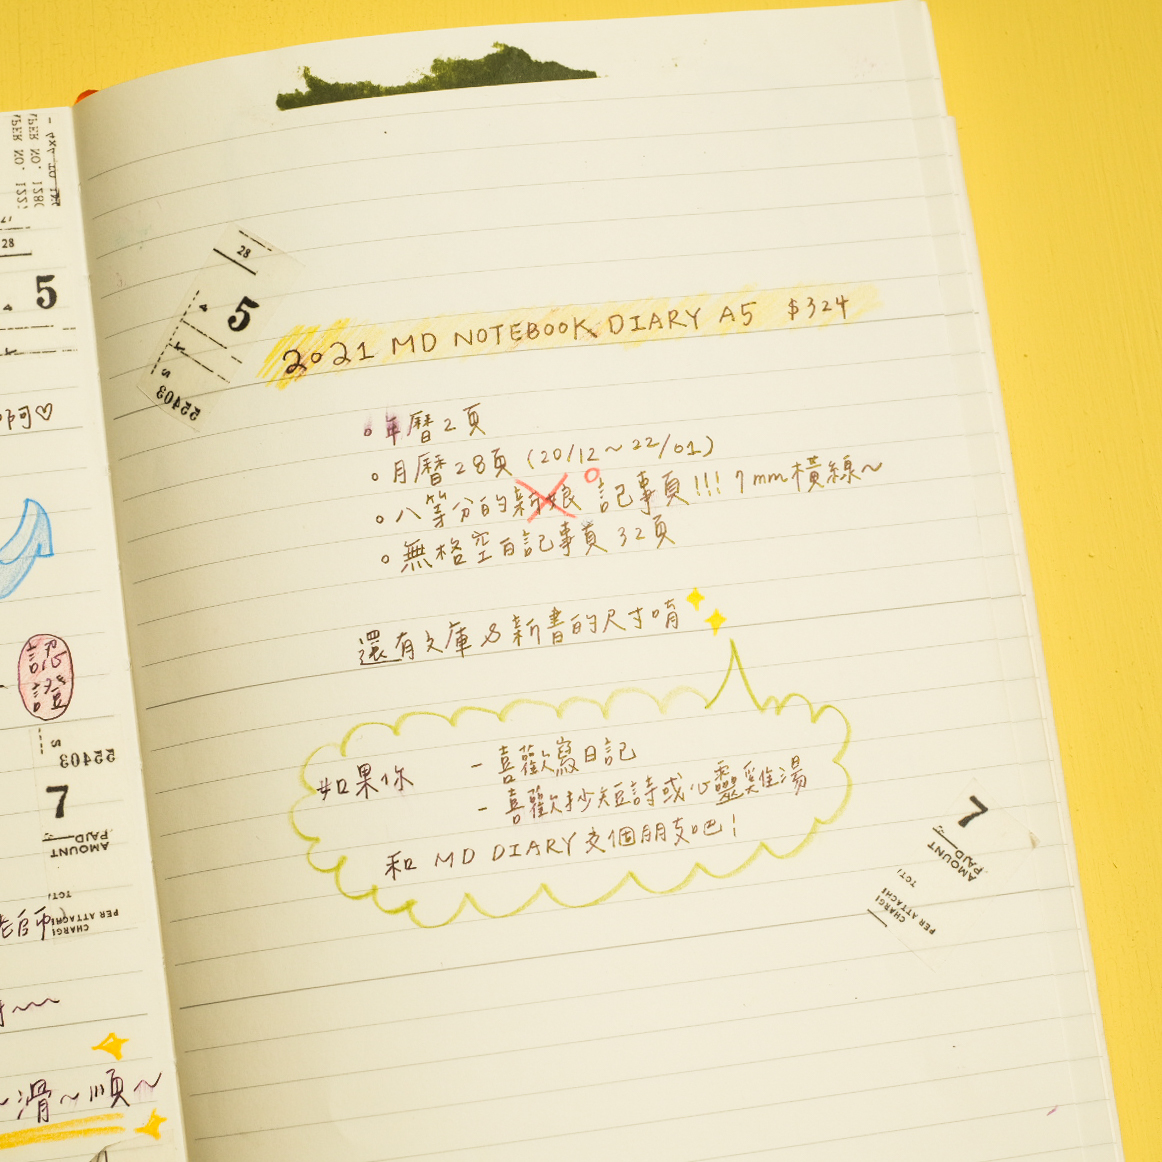 PER NO. 1280
28
5
阿♡
認
證
55403
7
AMOUNT
PAID
TCT.
CHARGE
PER ATTACH
老師
～滑～順～
28
5
55403
2021 MD NOTEBOOK DIARY A5 $324
。年曆2頁
。月曆28頁 (20/12～22/01)
。八等分的新娘 記事頁!!! 7mm橫線～
。無格空白記事頁 32頁
還有文庫&新書的尺寸唷
如果你
-喜歡寫日記
-喜歡抄短詩或心靈雞湯
和 MD DIARY 交個朋友吧!
7
AMOUNT
PAID
TCT.
CHARGE
PER ATTACH